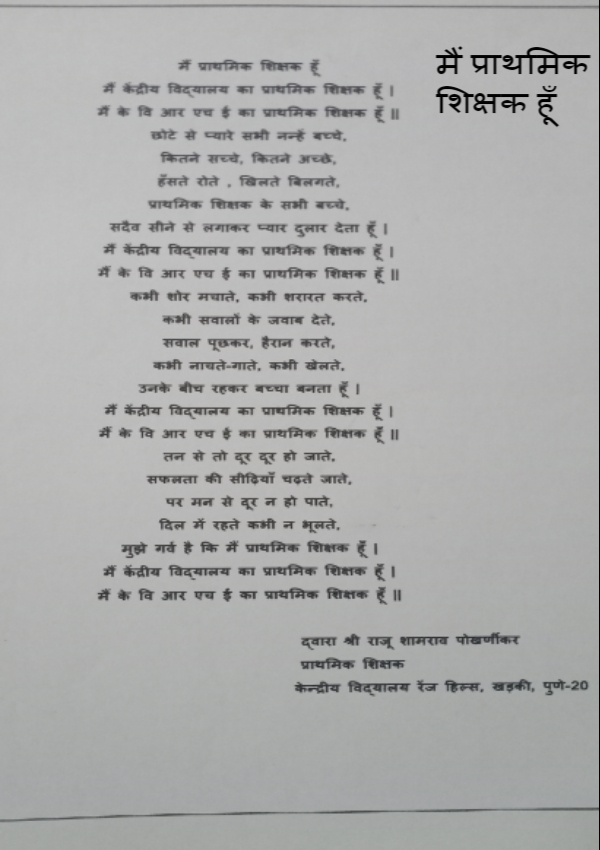 मैं प्राथमिक
शिक्षक हूँ
मैं प्राथमिक शिक्षक हूँ
मैं केंद्रीय विद्यालय का प्राथमिक शिक्षक हूँ |
मैं के वि आर एच ई का प्राथमिक शिक्षक हूँ ||
छोटे से प्यारे सभी नन्हें बच्चे,
कितने सच्चे, कितने अच्छे,
हँसते रोते , खिलते बिलगते,
प्राथमिक शिक्षक के सभी बच्चे,
सदैव सीने से लगाकर प्यार दुलार देता हूँ |
मैं केंद्रीय विद्यालय का प्राथमिक शिक्षक हूँ |
मैं के वि आर एच ई का प्राथमिक शिक्षक हूँ ||
कभी शोर मचाते, कभी शरारत करते,
कभी सवालों के जवाब देते,
सवाल पूछकर, हैरान करते,
कभी नाचते-गाते, कभी खेलते,
उनके बीच रहकर बच्चा बनता हूँ |
मैं केंद्रीय विद्यालय का प्राथमिक शिक्षक हूँ |
मैं के वि आर एच ई का प्राथमिक शिक्षक हूँ ||
तन से तो दूर दूर हो जाते,
सफलता की सीढ़ियाँ चढ़ते जाते,
पर मन से दूर न हो पाते,
दिल में रहते कभी न भूलते,
मुझे गर्व है कि मैं प्राथमिक शिक्षक हूँ |
मैं केंद्रीय विद्यालय का प्राथमिक शिक्षक हूँ |
मैं के वि आर एच ई का प्राथमिक शिक्षक हूँ ||
द्वारा श्री राजू शामराव पोखर्णीकर
प्राथमिक शिक्षक
केन्द्रीय विद्यालय रेंज हिल्स, खड़की, पुणे-20